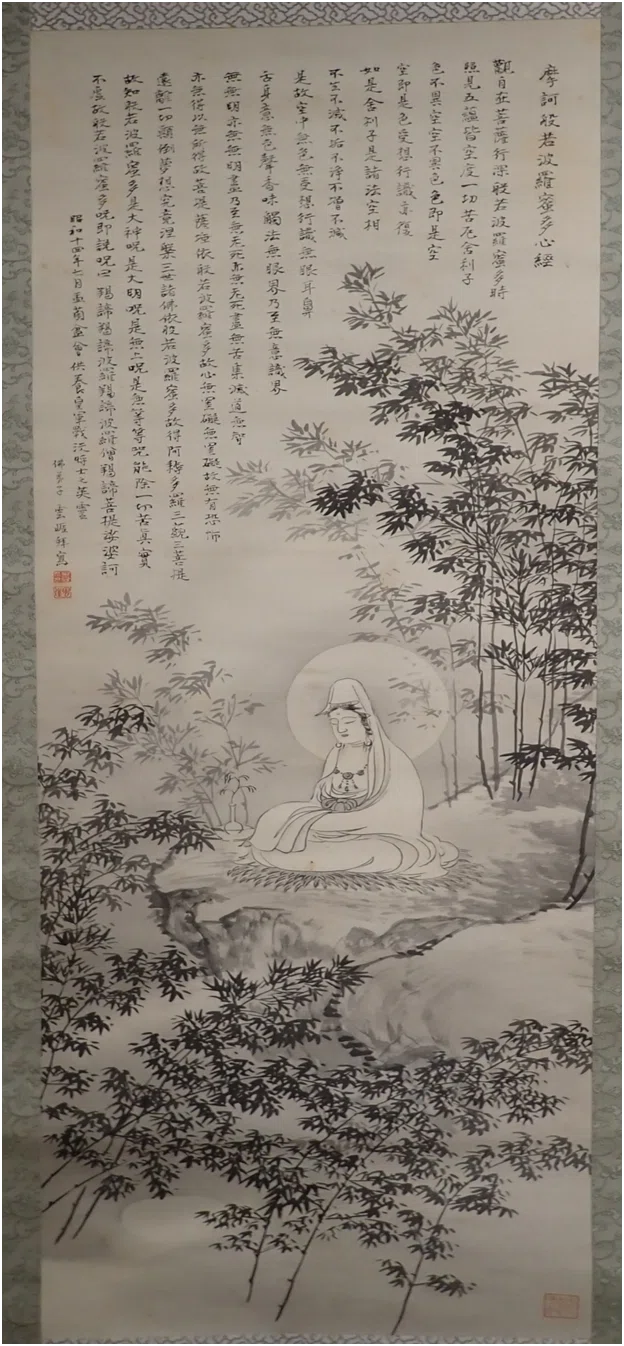 摩訶般若波羅蜜多心經
觀自在菩薩行深般若波羅蜜多時
照見五蘊皆空度一切苦厄舍利子
色不異空空不異色色即是空
空即是色受想行識亦復
如是舍利子是諸法空相
不生不滅不垢不淨不增不減
是故空中無色無受想行識無眼耳鼻
舌身意無色聲香味觸法無眼界乃至無意識界
無無明亦無無明盡乃至無老死亦無老死盡無苦集滅道無智
亦無得以無所得故菩提薩埵依般若波羅蜜多故心無罣礙無罣礙故無有恐怖
遠離一切顛倒夢想究竟涅槃三世諸佛依般若波羅蜜多故得阿耨多羅三藐三菩提
故知般若波羅蜜多是大神呪是大明呪是無上呪是無等等呪能除一切苦真實
不虛故般若波羅蜜多呪即說呪曰 羯諦羯諦波羅羯諦波羅僧羯諦菩提娑婆訶
昭和十四年七月盂蘭盆會供養皇軍戰沒將士之英靈
佛弟子 雲 拜寫